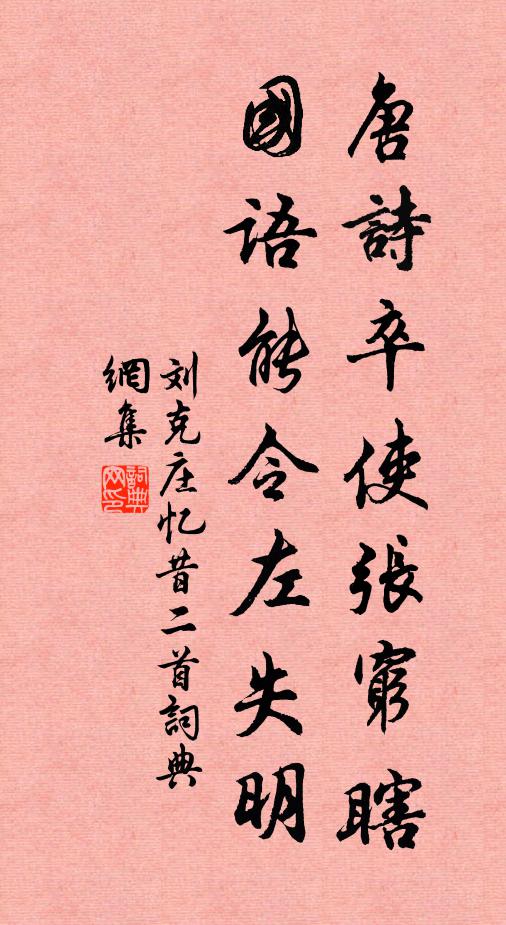 唐詩卒使張窮瞎
國語能令左失明
刘克庄忆昔二首詞典
網集
詞典網印